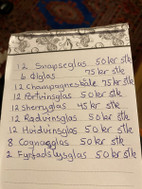 12 Snapseglas 50 kr stk
6 Ølglas 75 kr stk
12 Champagneskåle 75 kr stk
12 Portvinsglas 50 kr stk
12 Sherryglas 45 kr stk
12 Rødvinsglas 50 kr stk
12 Hvidvinsglas 50 kr stk
8 Cognacglas 50 kr stk
2 Fyrfadslysglas 50 kr stk